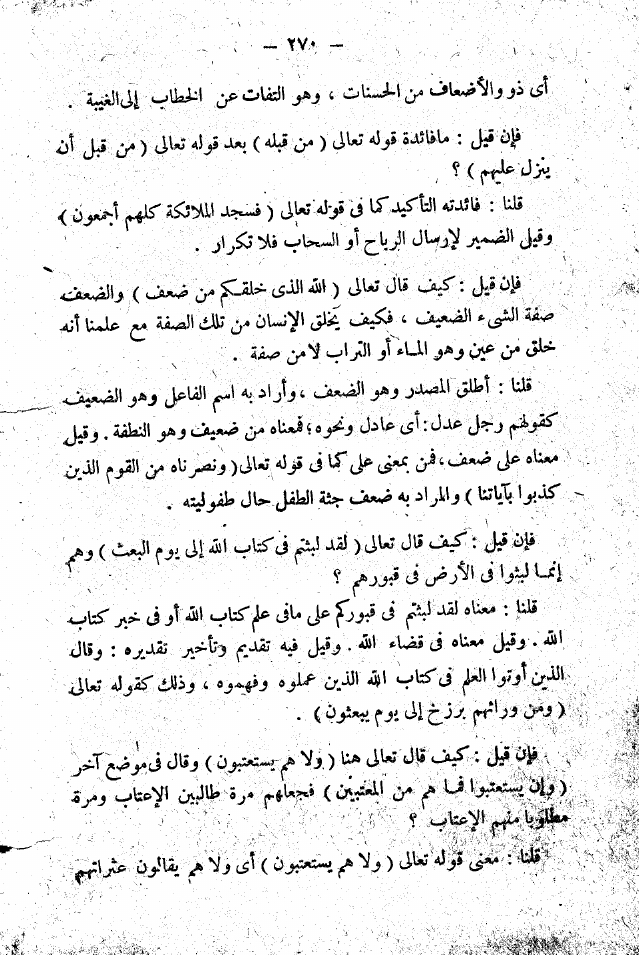 — ٢٧٠ —
أى ذو والأضعاف من الحسنات ، وهو التفات عن الخطاب إلى الغيبة .
فإن قيل : مافائدة قوله تعالى ( من قبله ) بعد قوله تعالى ( من قبل أن
ينزل عليهم ) ؟
قلنا : فائدته التأكيد كما فى قوله تعالى ( فسجد الملائكة كلهم أجمعون )
وقيل الضمير لإرسال الرياح أو السحاب فلا تكرار .
فإن قيل : كيف قال تعالى ( الله الذى خلقكم من ضعف ) والضعف
صفة الشىء الضعيف ، فكيف يخلق الإنسان من تلك الصفة مع علمنا أنه
خلق من عين وهو المـاء أو التراب لامن صفة .
قلنا : أطلق المصدر وهو الضعف ، وأراد به اسم الفاعل وهو الضعيف
كقولهم رجل عدل : أى عادل ونحوه ؛ فمعناه من ضعيف وهو النطفة . وقيل
معناه على ضعف ، فمن بمعنى على كما فى قوله تعالى ( ونصرناه من القوم الذين
كذبوا بآياتنا ) والمراد به ضعف جثة الطفل حال طفوليته .
فإن قيل : كيف قال تعالى ( لقد لبثتم فى كتاب الله إلى يوم البعث ) وهم
إنمـا لبثوا فى الأرض فى قبورهم ؟
قلنا : معناه لقد لبثتم فى قبوركم على مافى علم كتاب الله أو فى خبر كتاب
الله . وقيل معناه فى قضاء الله . وقيل فيه تقديم وتأخير تقديره : وقال
الذين أوتوا العلم فى كتاب الله الذين عملوه وفهموه ، وذلك كقوله تعالى
( ومن ورائهم برزخ إلى يوم يبعثون ) .
فإن قيل : كيف قال تعالى هنا ( ولا هم يستعتبون ) وقال فى موضع آخر
( وإن يستعتبوا فمـا هم من المعتبين ) فجعلهم مرة طالبين الإعتاب ومرة
مطلوبا منهم الإعتاب ؟
قلنا : معنى قوله تعالى ( ولا هم يستعتبون ) أى ولا هم يقالون عثراتهم